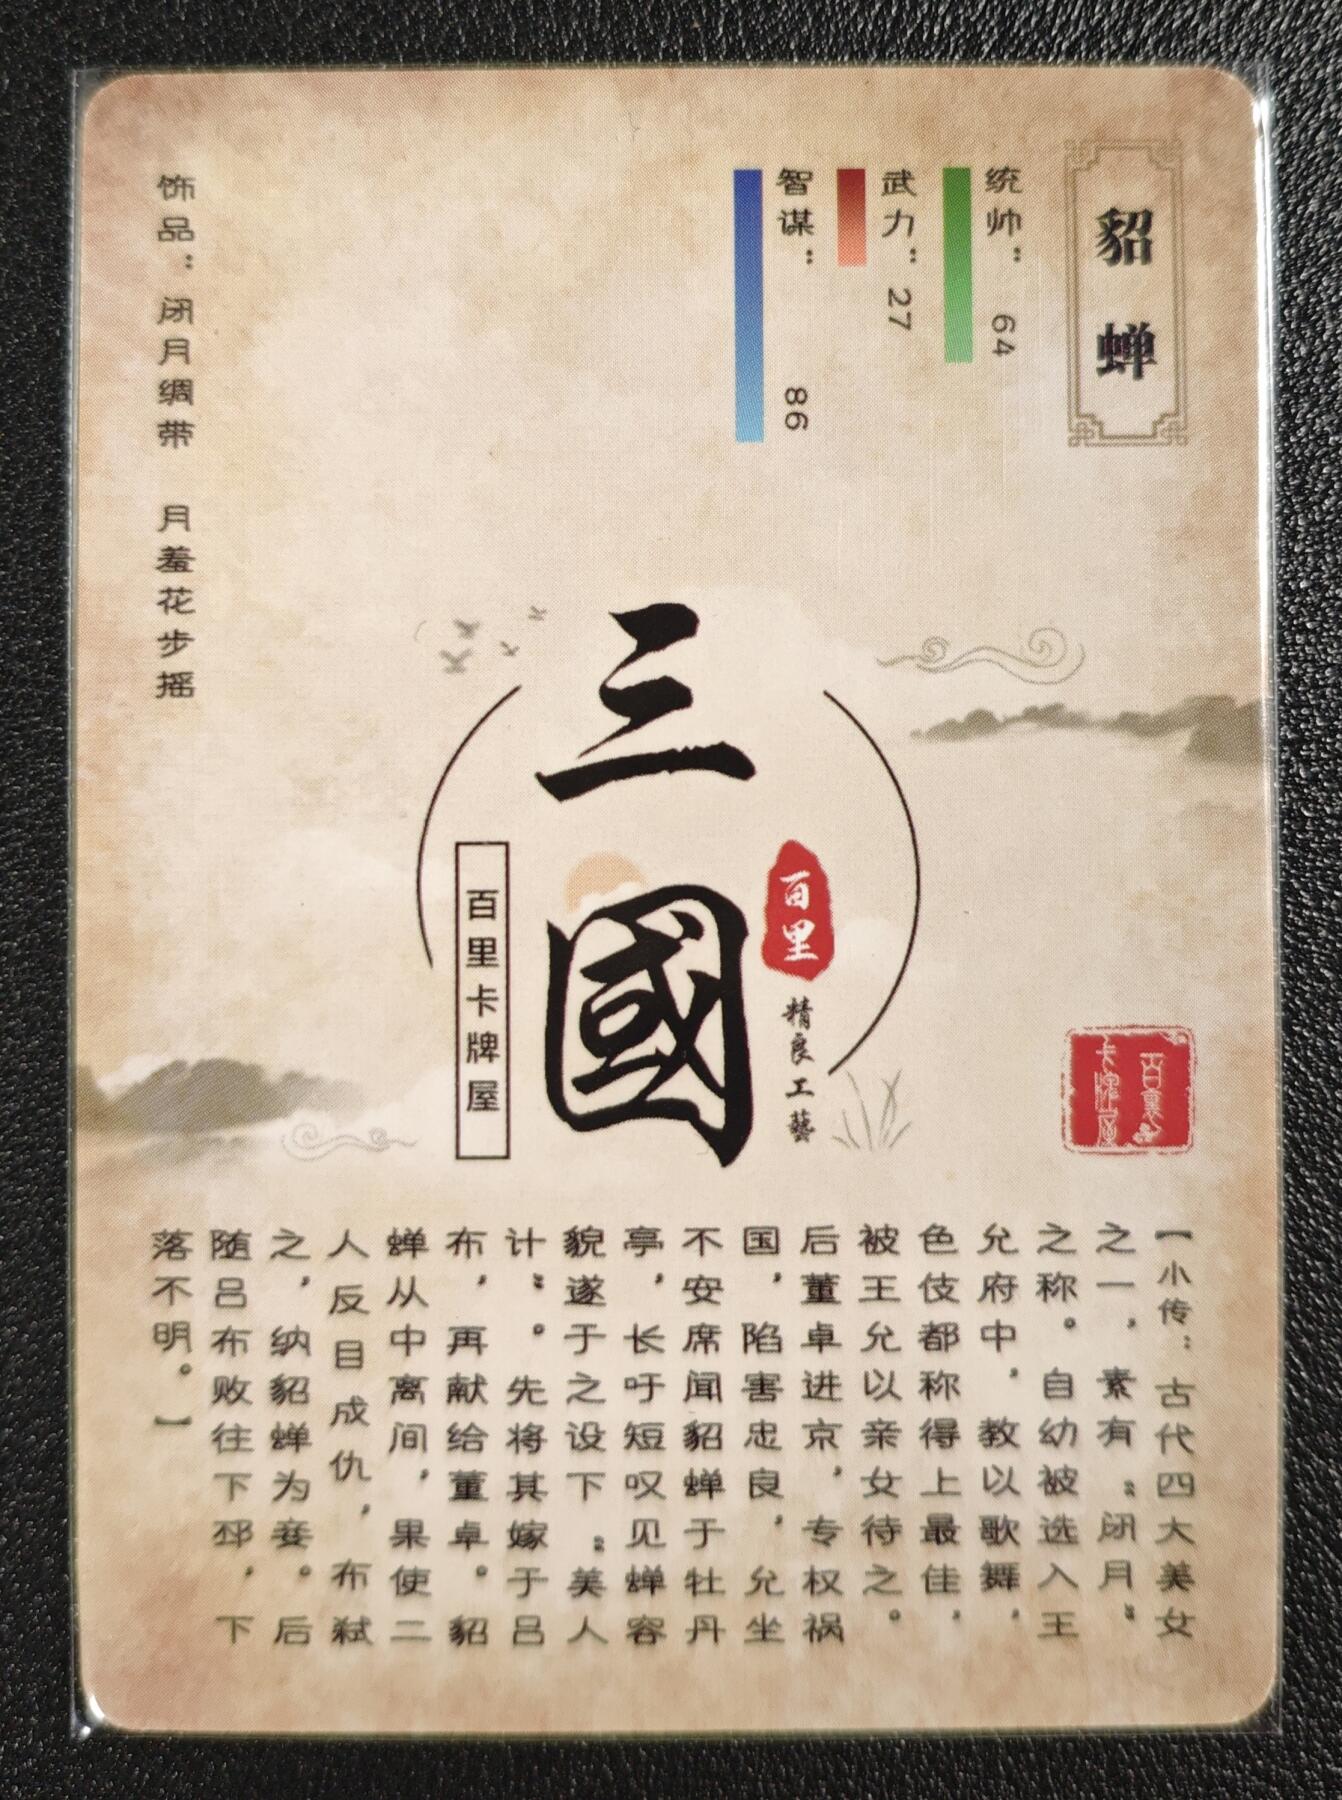 貂蝉
统帅：64
武力：27
智谋：86
饰品：闭月绸带 月羞花步摇
三國
百里
精良工藝
百里卡牌屋
百裏
卡牌屋
【小传：古代四大美女
之一，素有“闭月”
之称。自幼被选入王
允府中，教以歌舞，
色伎都称得上最佳，
被王允以亲女待之。
后董卓进京，专权祸
国，陷害忠良，允坐
不安席闻貂蝉于牡丹
亭，长吁短叹见蝉容
貌遂于之设下“美人
计”。先将其嫁于吕
布，再献给董卓。貂
蝉从中离间，果使二
人反目成仇，布弑
之，纳貂蝉为妾。后
随吕布败往下邳，下
落不明。】